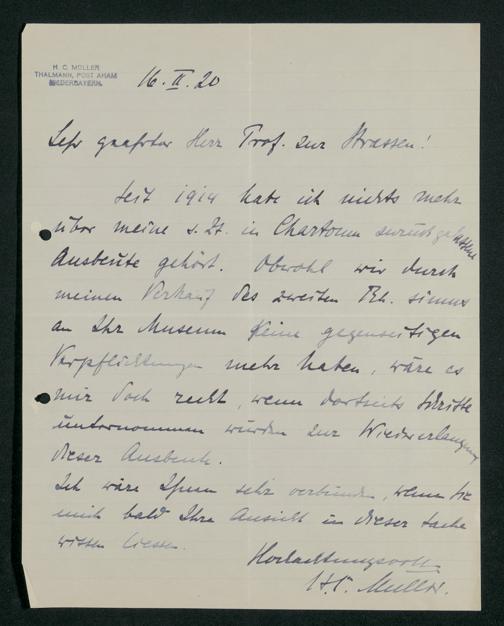 H. C. MÜLLER
THALMANN, POST AHAM
NIEDERBAYERN.
16. II. 20
Sehr geehrter Herr Prof. zur Strassen!
Seit 1914 habe ich nichts mehr
über meine s. Zt. in Chartoum zurückgelassene
Ausbeute gehört. Obwohl wir durch
meinen Verkauf des zweiten Rh. simus
an Ihr Museum keine gegenseitigen
Verpflichtungen mehr haben, wäre es
mir doch recht, wenn dortseits Schritte
unternommen würden zur Wiedererlangung
dieser Ausbeute.
Ich wäre Ihnen sehr verbunden, wenn Sie
mich bald Ihre Ansicht in dieser Sache
wissen liessen.
Hochachtungsvoll
H. C. Müller.